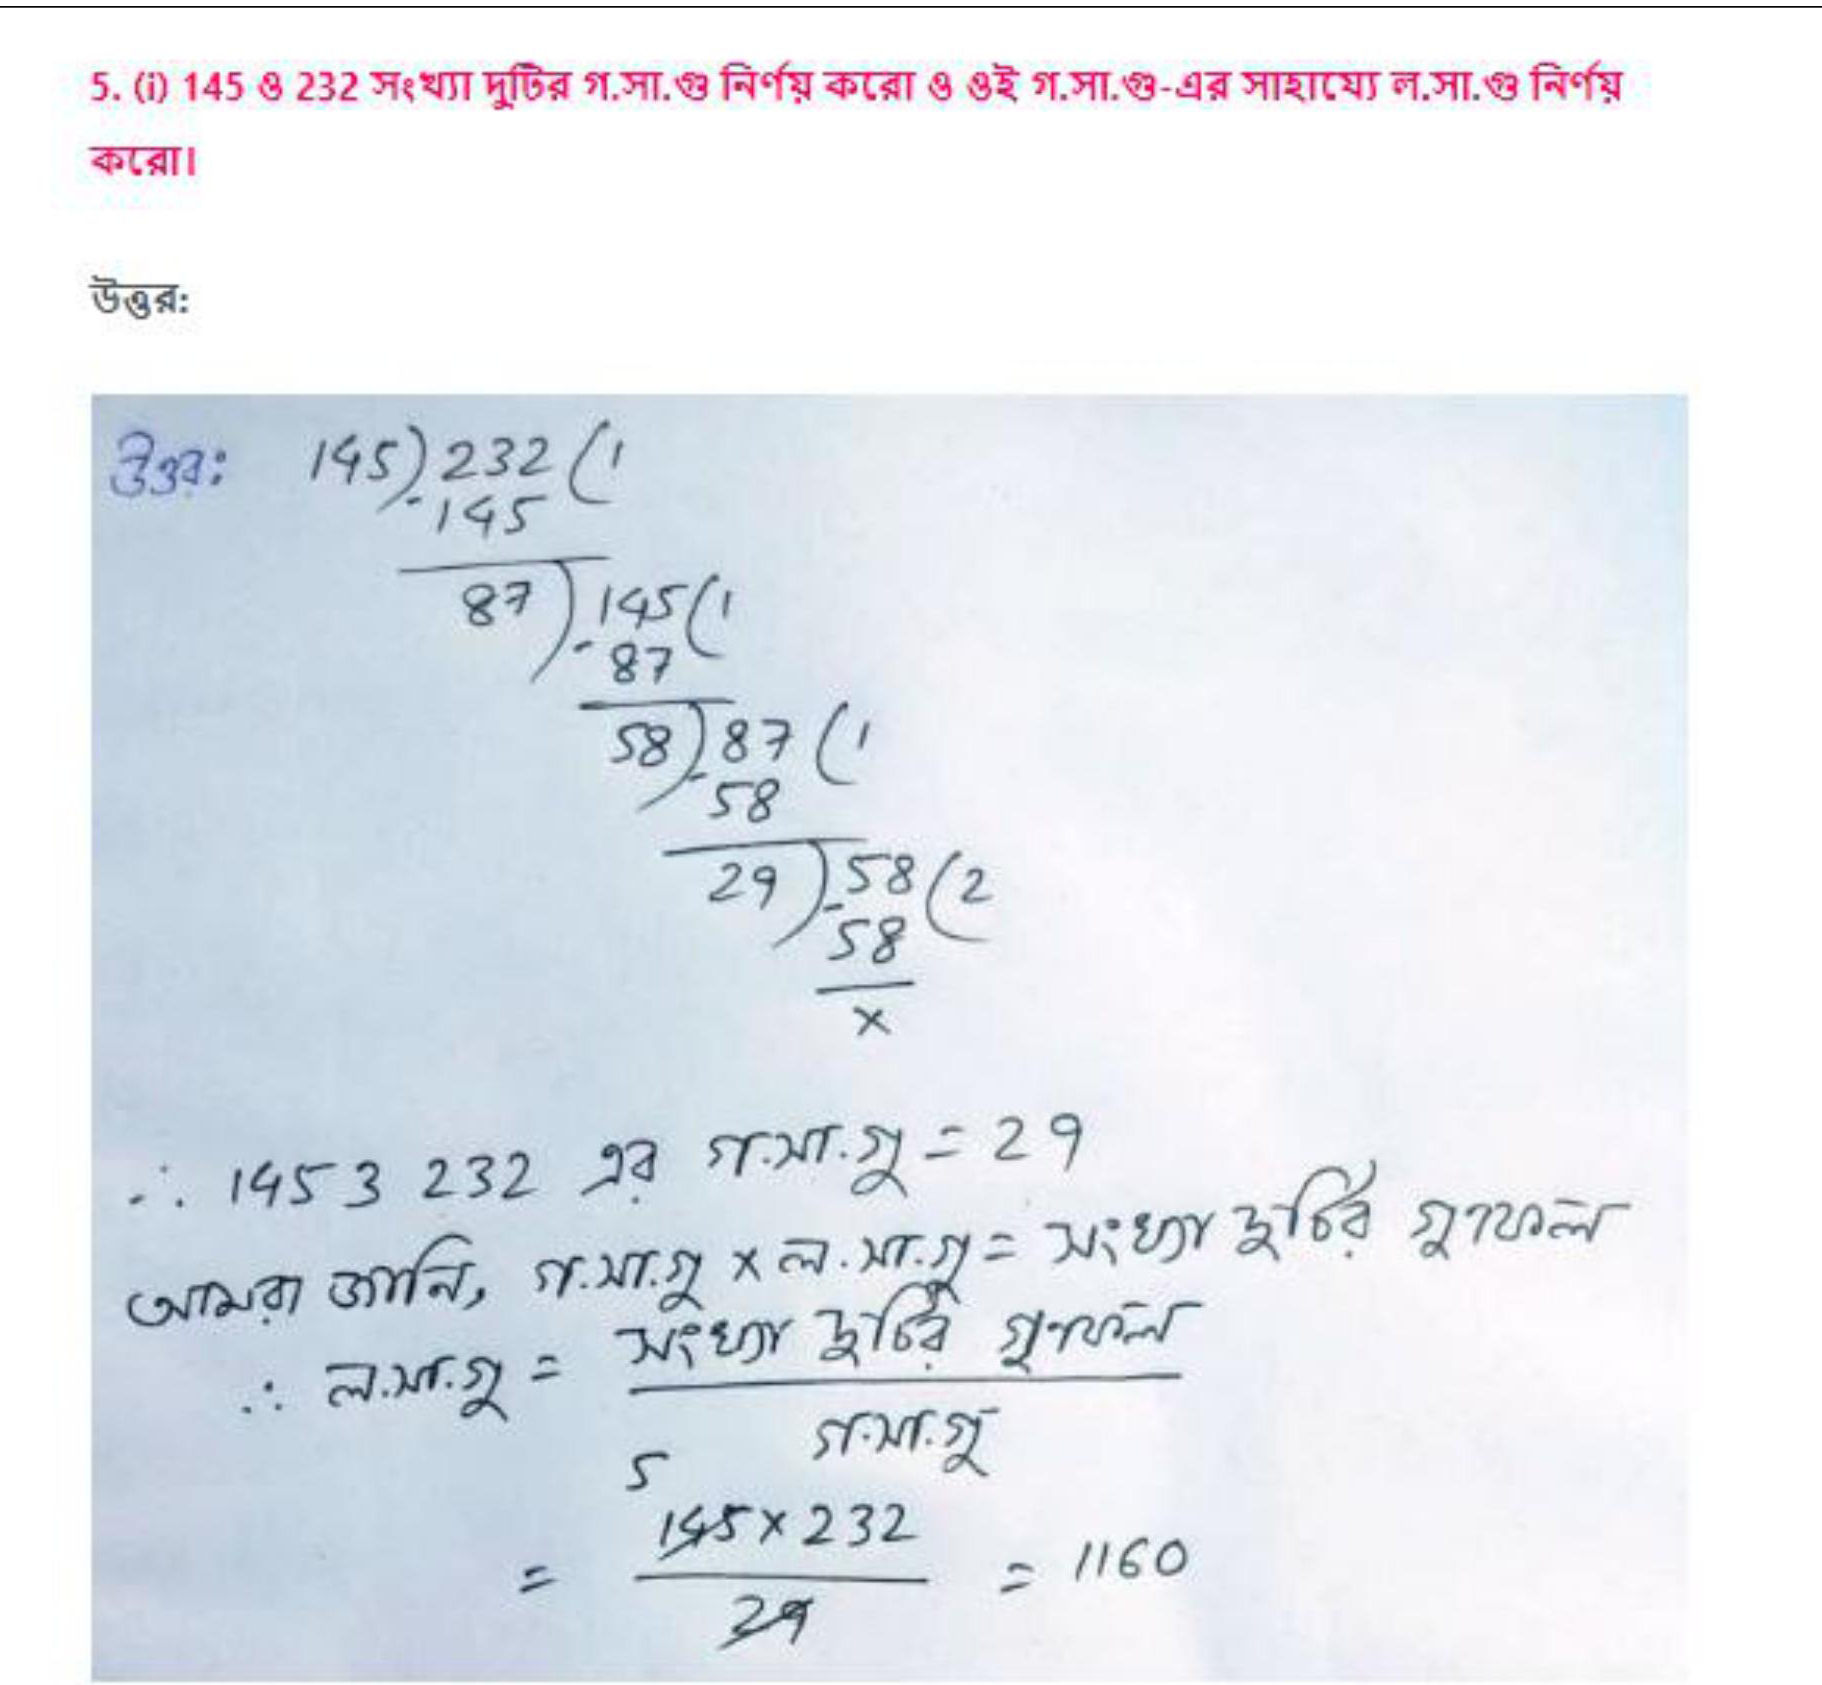 5. (i) 145 ও 232 সংখ্যা দুটির গ.সা.গু নির্ণয় করো ও ওই গ.সা.গু-এর সাহায্যে ল.সা.গু নির্ণয়
করো।
উত্তর:
উত্তর: 145) 232 (1
- 145
87 ) 145 (1
- 87
58 ) 87 (1
- 58
29 ) 58 (2
- 58
×
∴ 145 ও 232 এর গ.সা.গু = 29
আমরা জানি, গ.সা.গু × ল.সা.গু = সংখ্যা দুটির গুণফল
∴ ল.সা.গু = সংখ্যা দুটির গুণফল
গ.সা.গু
5
145 × 232
= = 1160
29